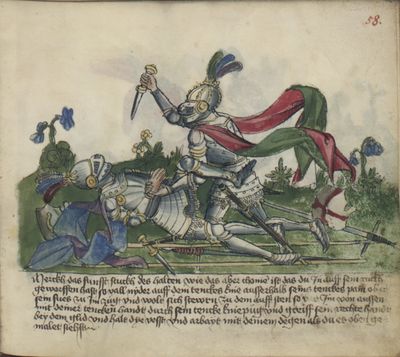 58.
Merckh das funfft stuckh des halten wie das aber chome ist das du In auff sein rukh
geworffen hast so vall nyder auff den tencken knie ausserhalb seins tencken pain ober
sein fues zu Im zugt und wolt sich stewrn zu dem auff sten so Im von aussen
mit deiner tencken handt durch sein tencke knie pug und greiff sein rechte handt
bey dem glid und halt die vesst und arbayt mit deinem degen als du es oben ge
malet siechst